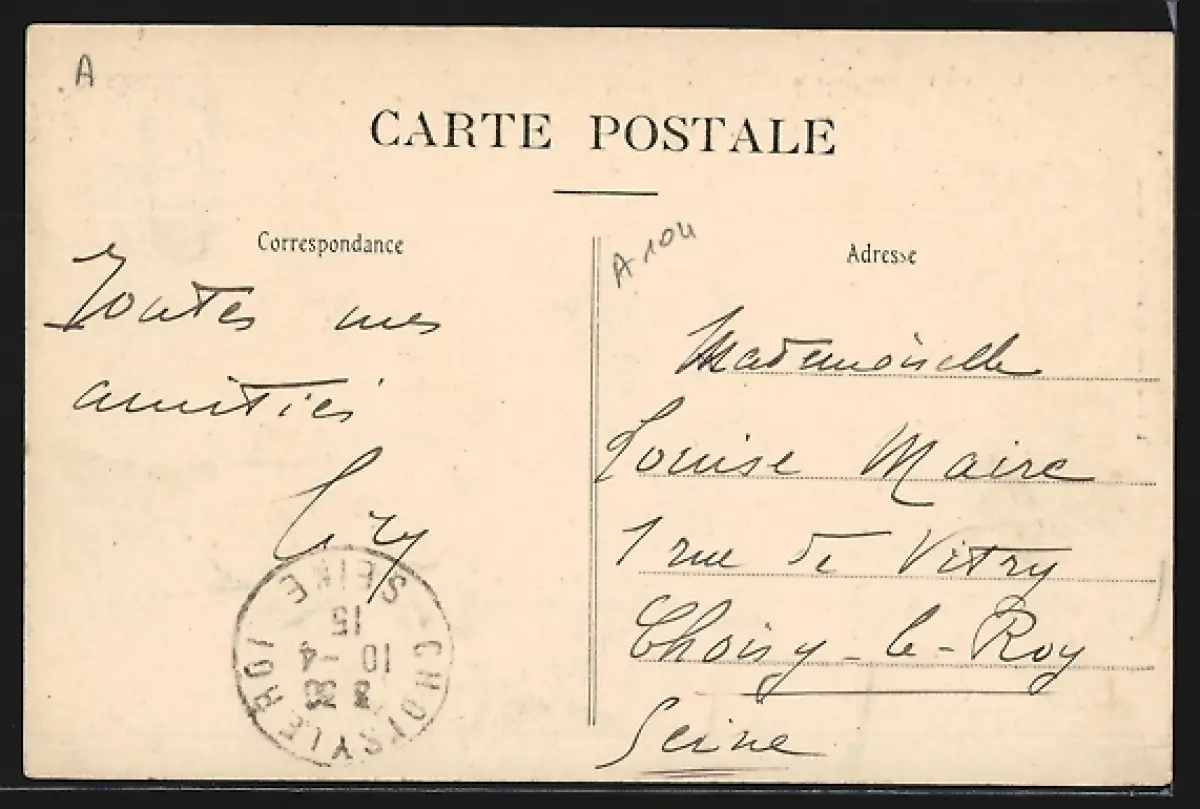 A
CARTE POSTALE
Correspondance
Toutes mes
amitiés
A 104
Adresse
Mademoiselle
Louise Maire
1 rue de Vitry
Choisy-le-Roy
Seine
CHOISY LE ROI
SEINE
10 -4
15